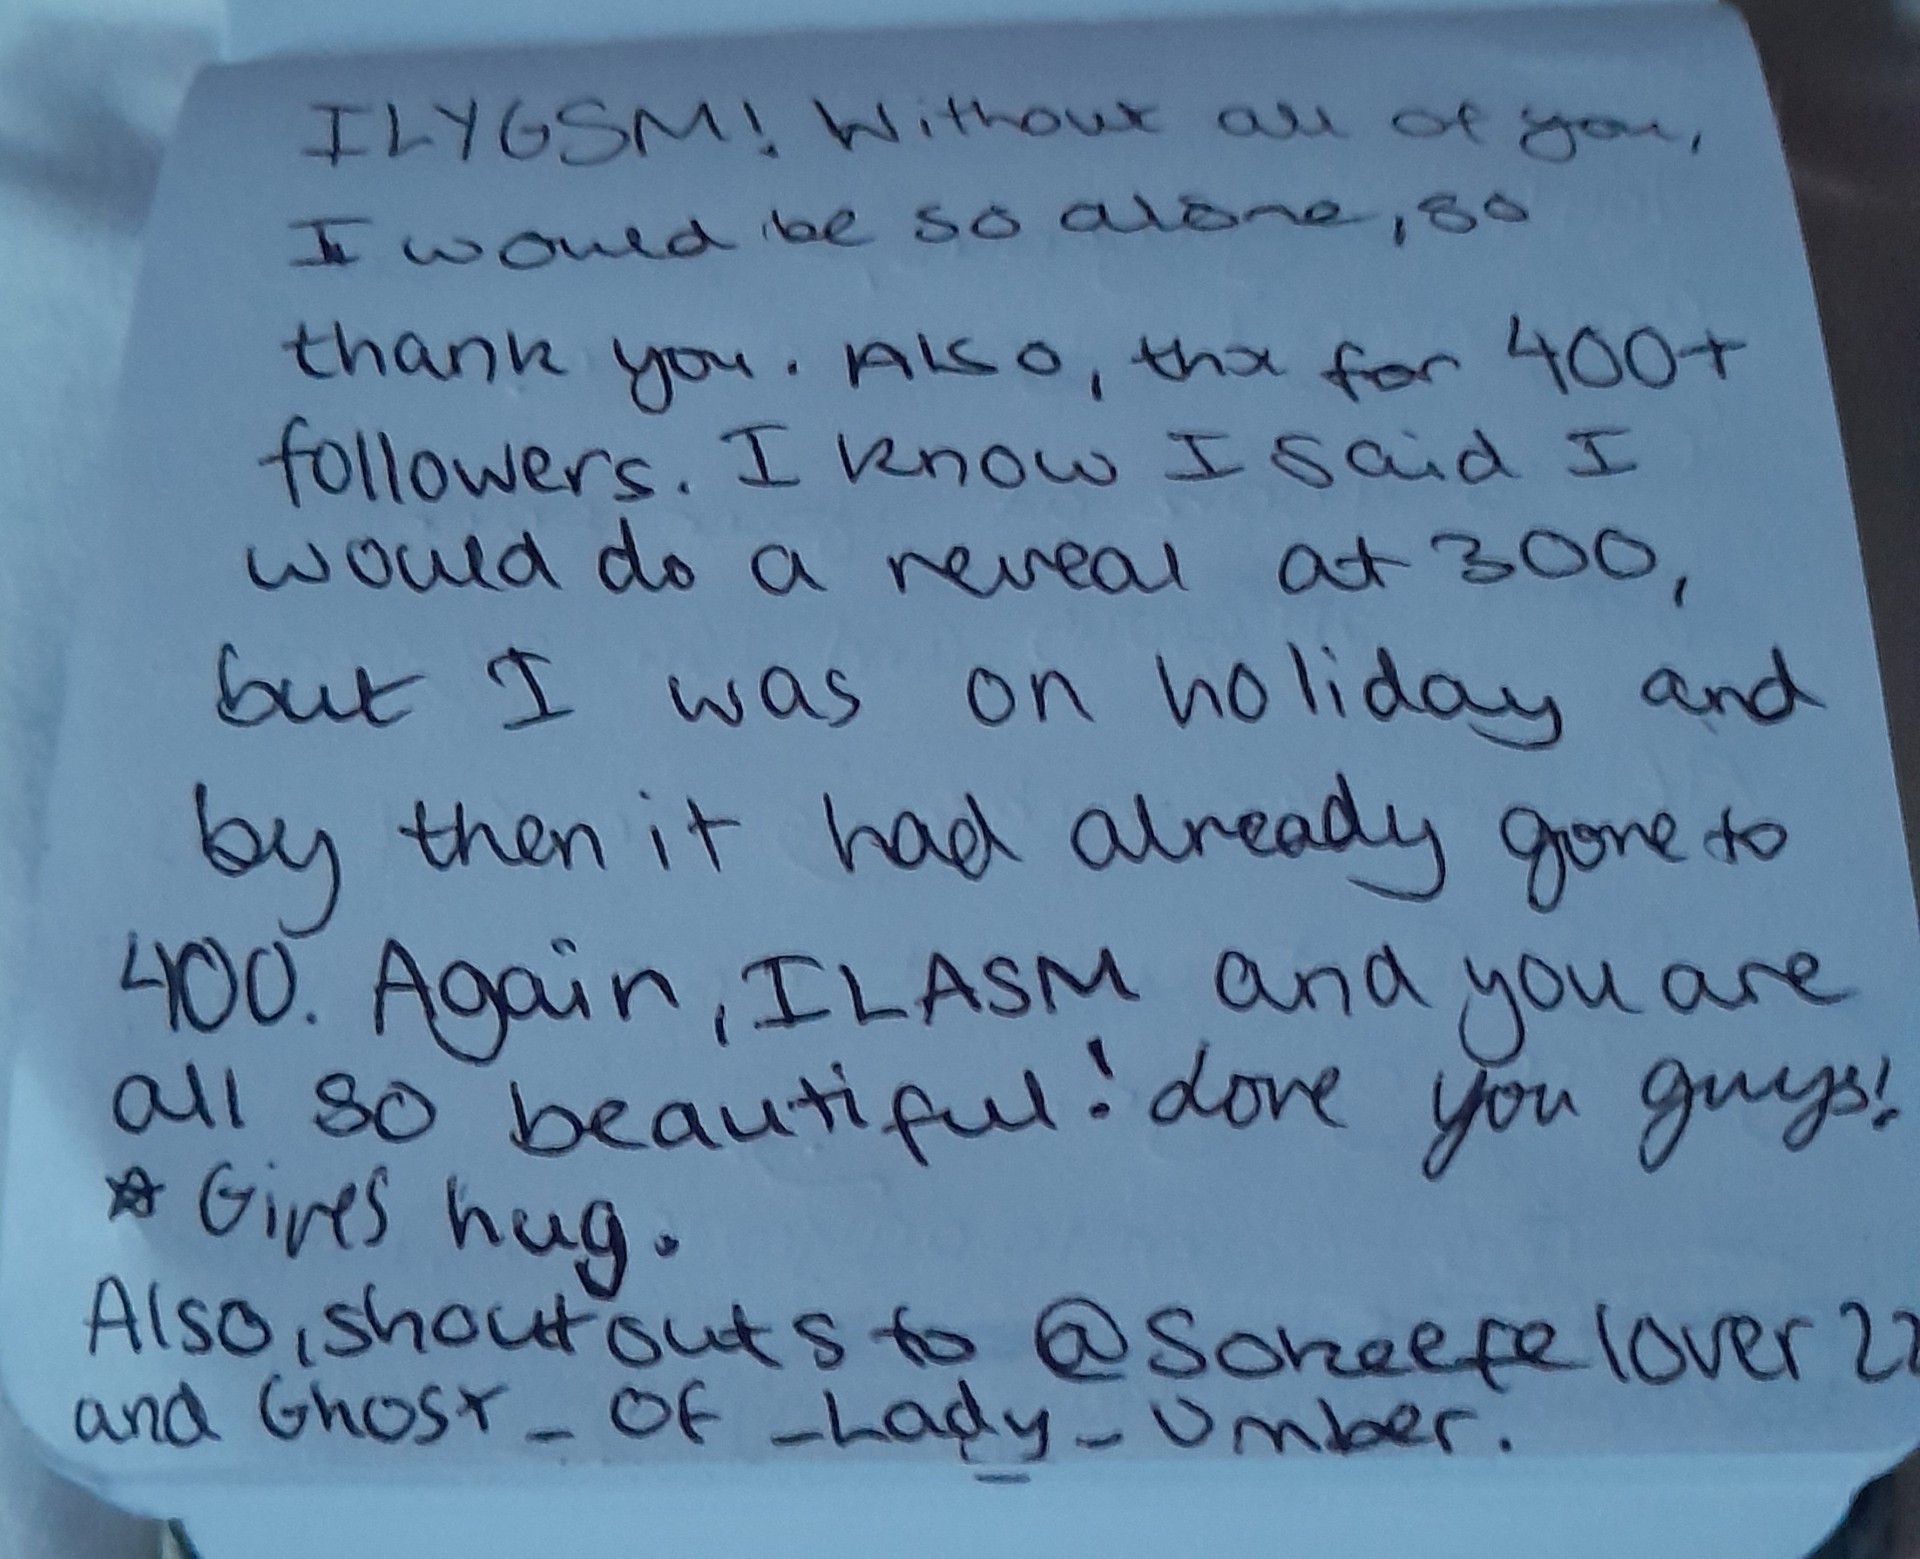 ILYGSM! Without all of you,
I would be so alone, so
thank you. Also, thx for 400+
followers. I know I said I
would do a reveal at 300,
but I was on holiday and
by then it had already gone to
400. Again, ILASM and you are
all so beautiful! Love you guys!
☆ Gives hug.
Also, shoutouts to @Sokeefelover22
and Ghost_Of_Lady_Umber.